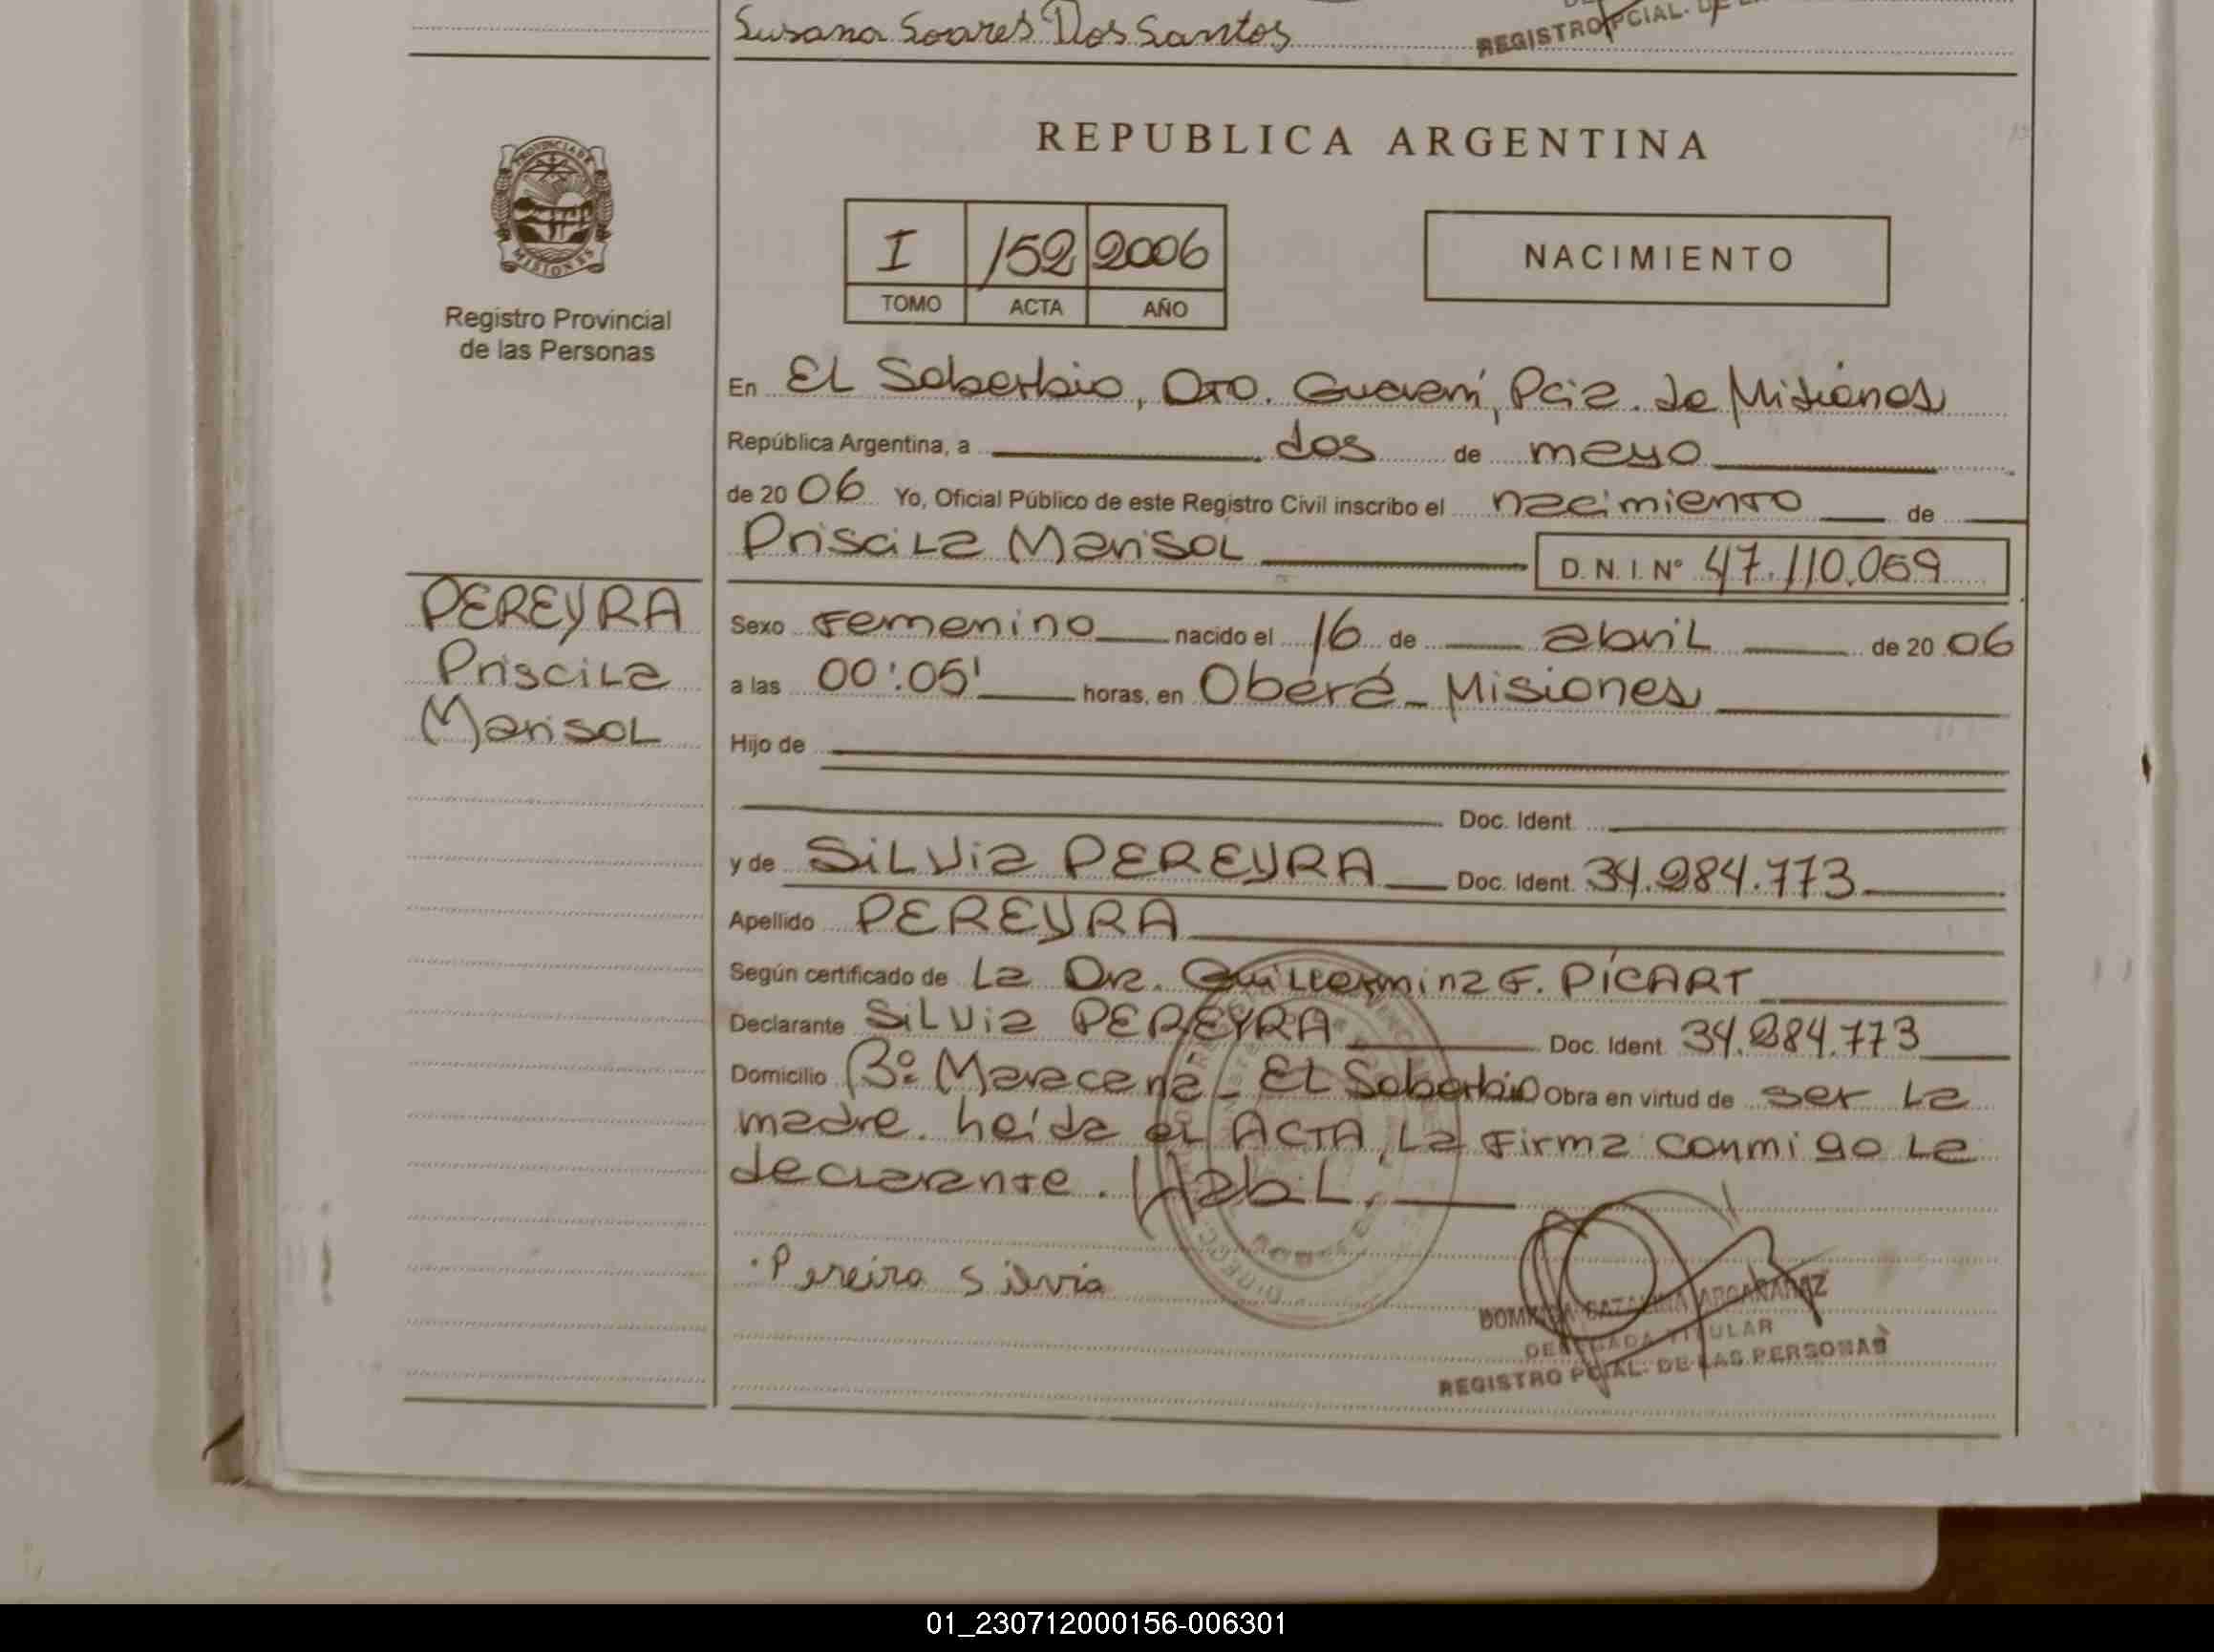 Susana Soares Dos Santos
REGISTRO PCIAL. DE
REPUBLICA ARGENTINA
PROVINCIA DE
MISIONES
I 152 2006
TOMO ACTA AÑO
NACIMIENTO
Registro Provincial
de las Personas
En EL Soberbio, Dto. Guaraní, Pcia. de Misiones
República Argentina, a dos de mayo
de 20 06 Yo, Oficial Público de este Registro Civil inscribo el nacimiento de
PrisciLa MarisoL
D. N. I. Nº 47.110.059
PEREYRA
PrisciLa
MarisoL
Sexo Femenino nacido el 16 de abriL de 20 06
a las 00:05' horas, en Oberá - Misiones
Hijo de
Doc. Ident.
y de SiLvia PEREYRA Doc. Ident. 34.284.773
Apellido PEREYRA
Según certificado de La Dra. GuiLLermina F. PÍCART
Declarante SiLvia PEREYRA Doc. Ident. 34.284.773
Domicilio Bº Maracana - EL Soberbio Obra en virtud de ser La
madre. Leída eL ACTA, La Firma conmigo La
decLarante. HabiL.
Pereira Silvia
CATALINA ARGAÑARAZ
DELEGADA TITULAR
REGISTRO PCIAL. DE LAS PERSONAS
01_230712000156-006301